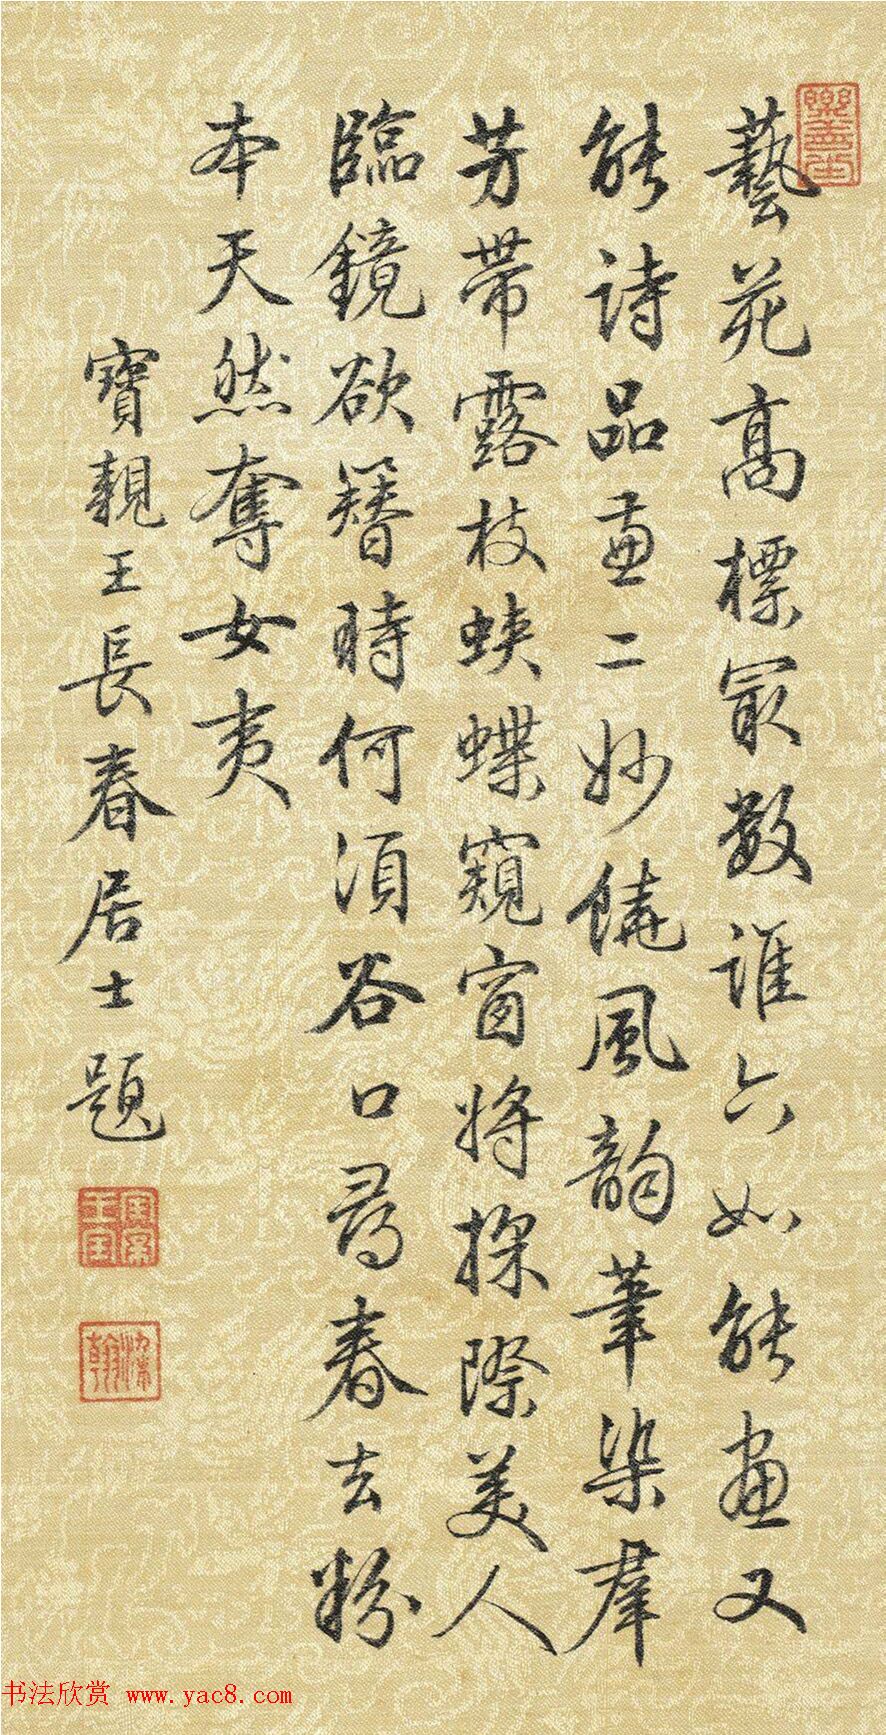 藝苑高標冣數誰六如能畫又
能詩品畫二妙饒風韵筆染羣
芳帶露枝蛺蝶窺窗將探際美人
臨鏡欲簪時何須谷口尋春去粉
本天然奪女夷
寶親王長春居士題
樂善堂
寶親王寶
翰
书法欣赏 www.yac8.com